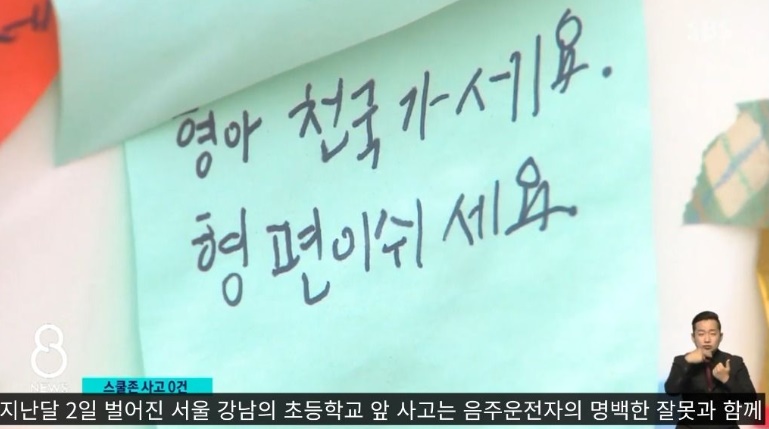 SBS
형아 천국 가세요.
형 편이쉬세요.
8
NEWS
스쿨존 사고 0건
지난달 2일 벌어진 서울 강남의 초등학교 앞 사고는 음주운전자의 명백한 잘못과 함께